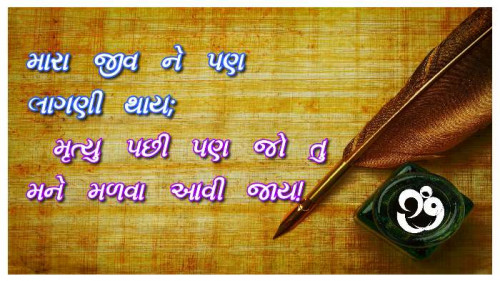 મારા જીવ ને પણ
લાગણી થાય;
મૃત્યુ પછી પણ જો તુ
મને મળવા આવી જાય!